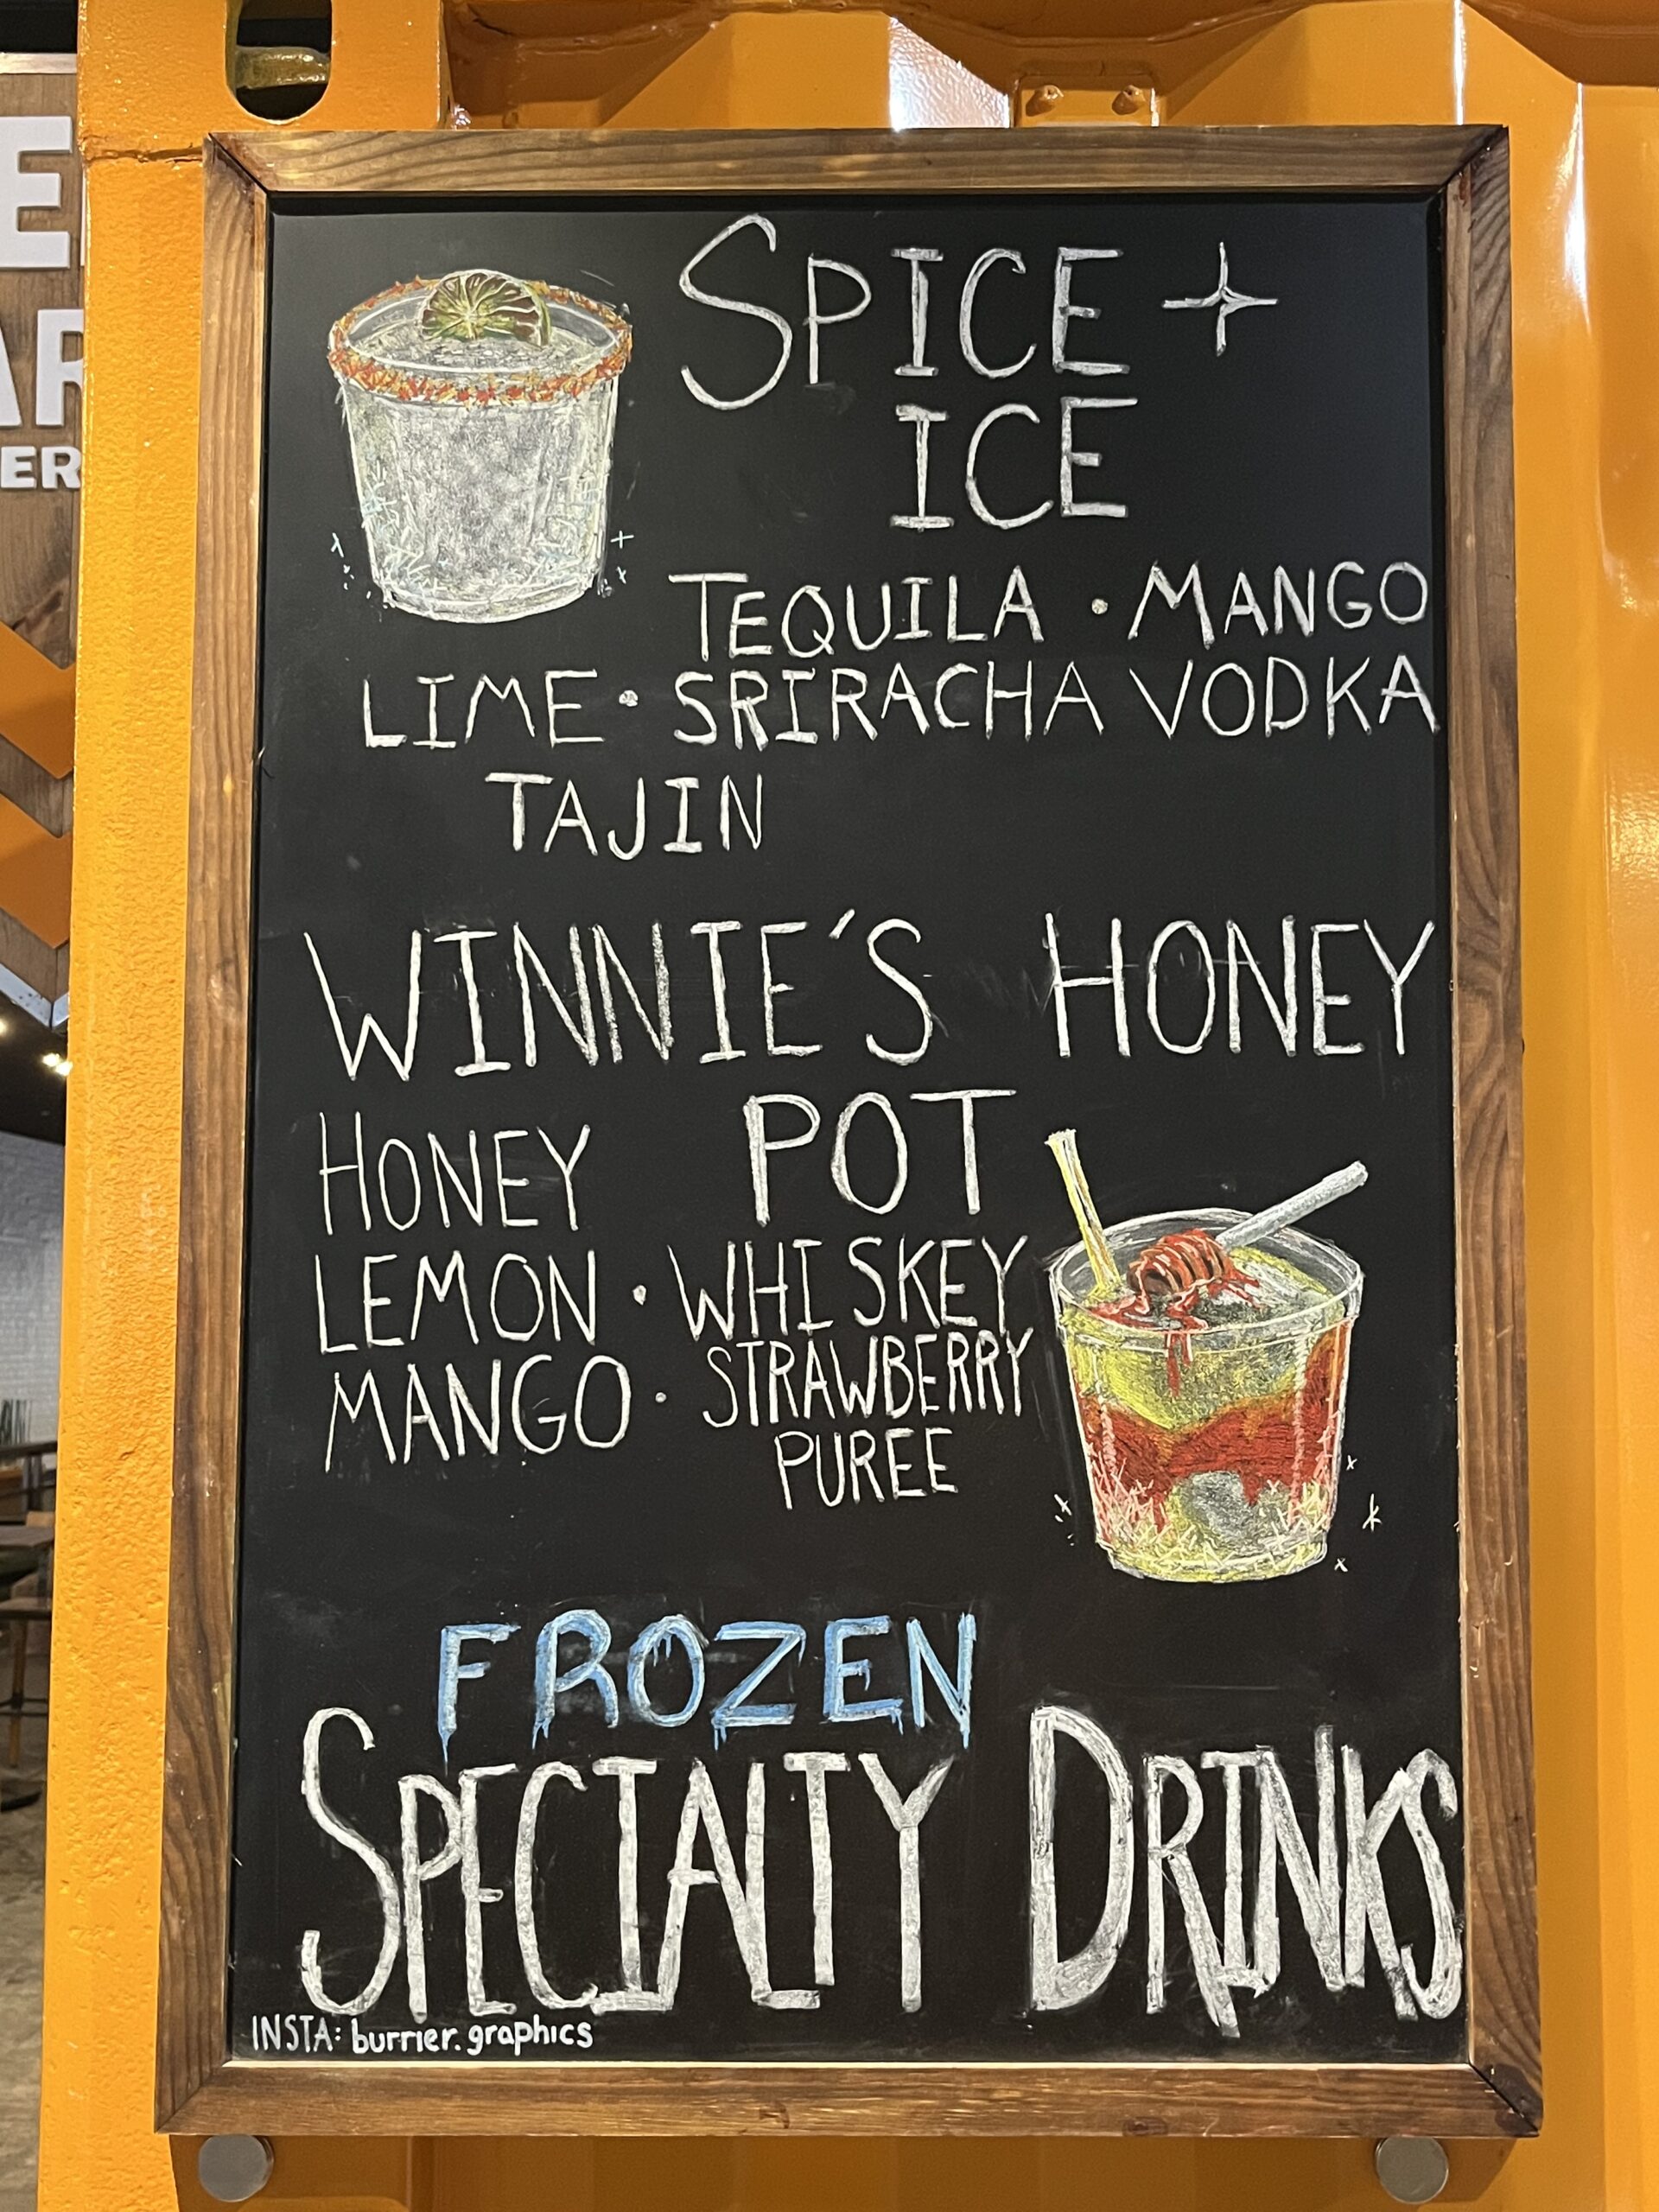 SPICE +
ICE
TEQUILA • MANGO
LIME • SRIRACHA VODKA
TAJIN
WINNIE'S HONEY
POT
HONEY
LEMON • WHISKEY
MANGO • STRAWBERRY
PUREE
FROZEN
SPECIALTY DRINKS
INSTA: burrier.graphics
E
AR
ER